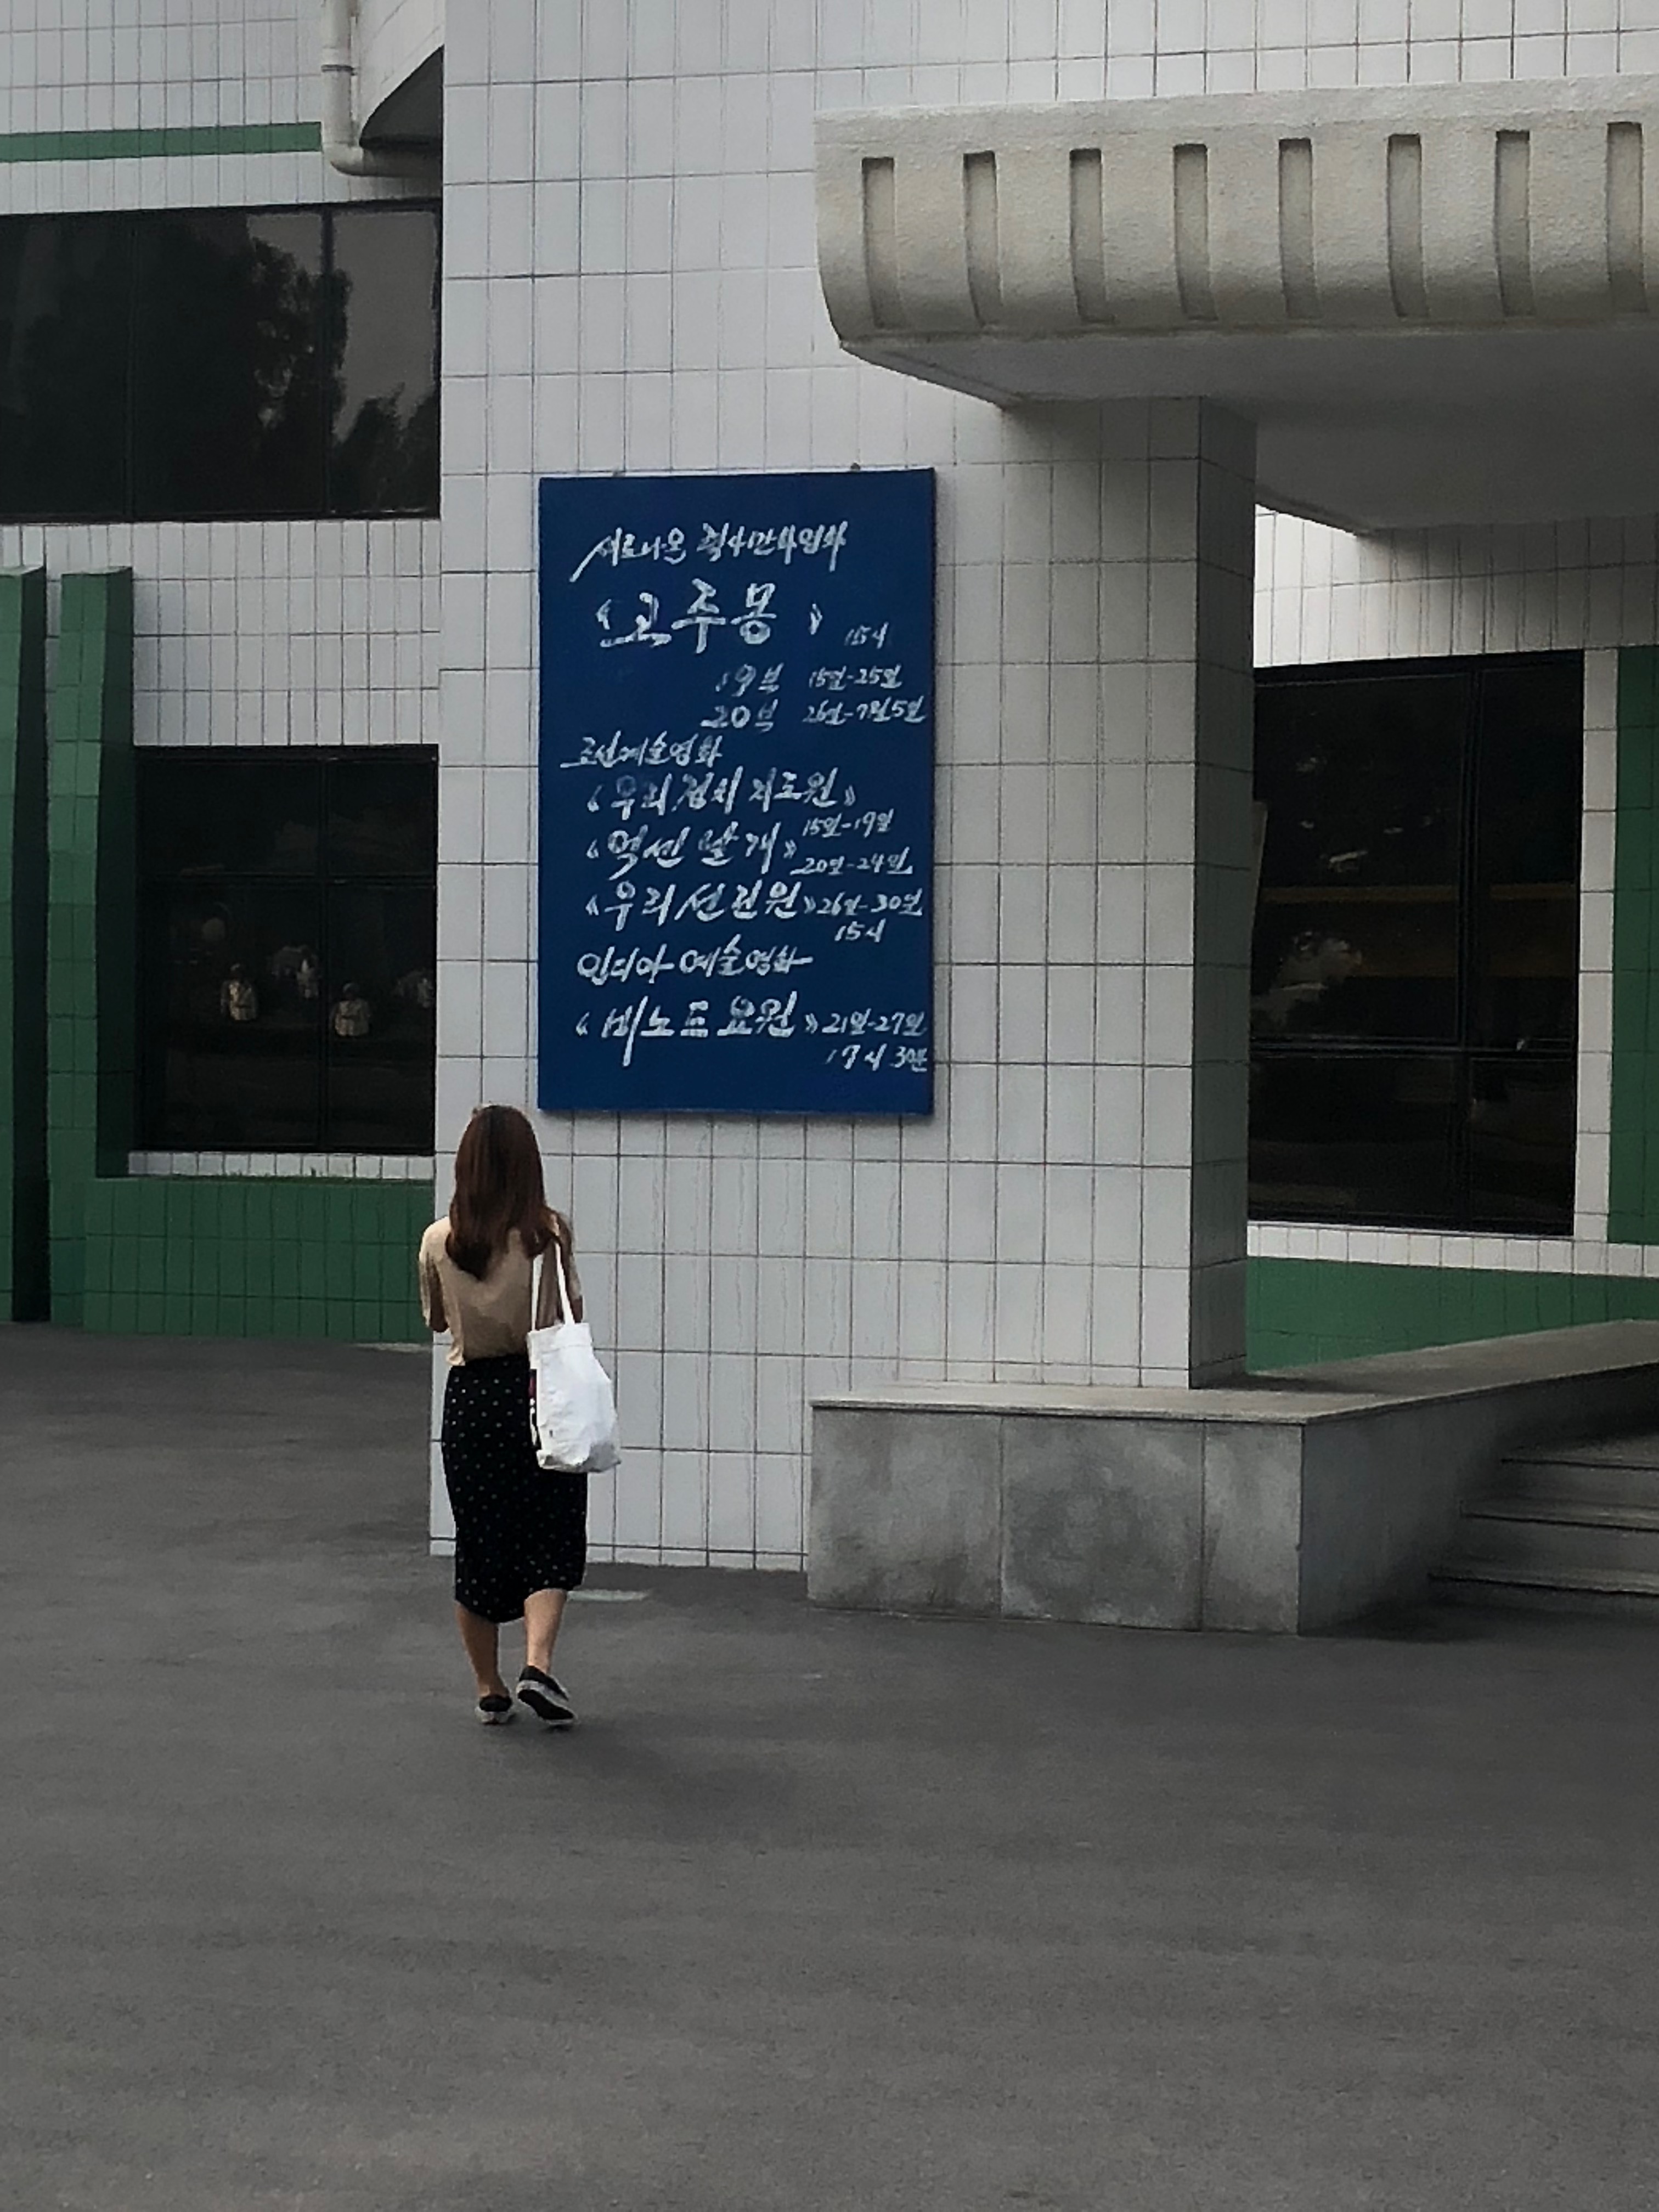 새로나온 력사만화영화
《고주몽》 15시
19부 15일-25일
20부 26일-7월5일
조선예술영화
《우리 정치지도원》
15일-19일
《억센 날개》 20일-24일
《우리 선관원》 26일-30일
15시
인디아예술영화
《비노드요원》 21일-27일
17시 30분